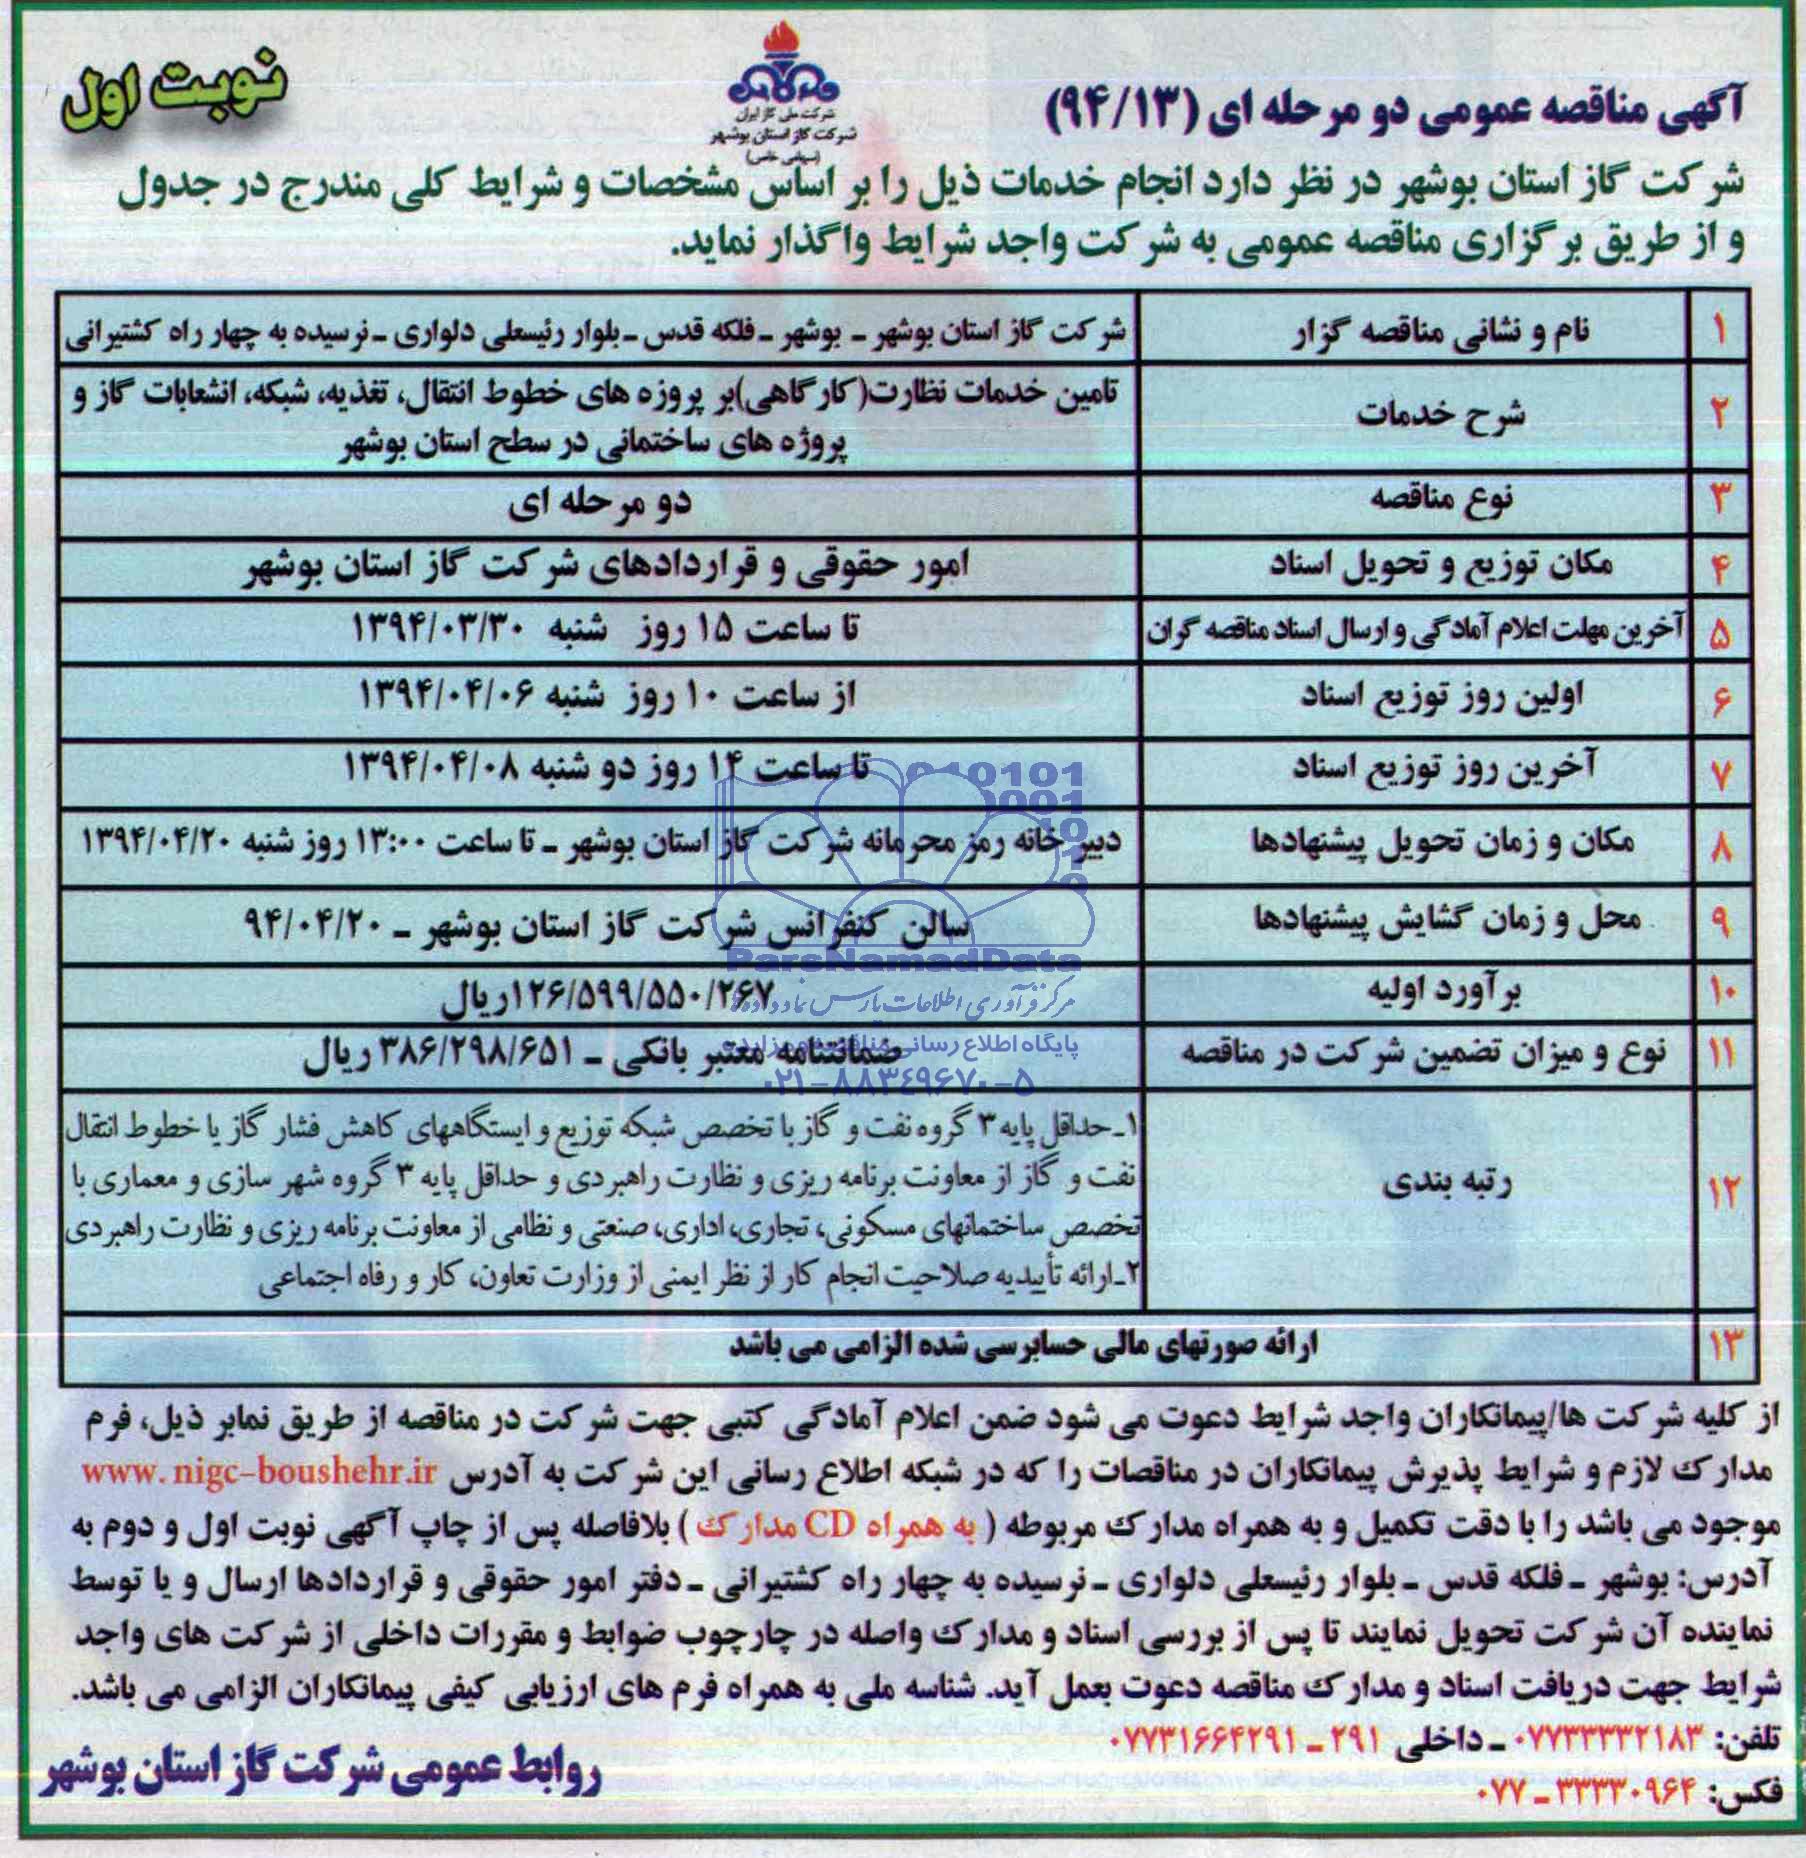 نوبت اول
شرکت ملی گاز ایران
شرکت گاز استان بوشهر
(سهامی خاص)
آگهی مناقصه عمومی دو مرحله ای (۹۴/۱۳)
شرکت گاز استان بوشهر در نظر دارد انجام خدمات ذیل را بر اساس مشخصات و شرایط کلی مندرج در جدول
و از طریق برگزاری مناقصه عمومی به شرکت واجد شرایط واگذار نماید.
۱ نام و نشانی مناقصه گزار شرکت گاز استان بوشهر ـ بوشهر ـ فلکه قدس ـ بلوار رئیسعلی دلواری ـ نرسیده به چهار راه کشتیرانی
۲ شرح خدمات تامین خدمات نظارت(کارگاهی)بر پروزه های خطوط انتقال، تغذیه، شبکه، انشعابات گاز و
پروژه های ساختمانی در سطح استان بوشهر
۳ نوع مناقصه دو مرحله ای
۴ مکان توزیع و تحویل اسناد امور حقوقی و قراردادهای شرکت گاز استان بوشهر
۵ آخرین مهلت اعلام آمادگی و ارسال اسناد مناقصه گران تا ساعت ۱۵ روز شنبه ۱۳۹۴/۰۳/۳۰
۶ اولین روز توزیع اسناد از ساعت ۱۰ روز شنبه ۱۳۹۴/۰۴/۰۶
۷ آخرین روز توزیع اسناد تا ساعت ۱۴ روز دو شنبه ۱۳۹۴/۰۴/۰۸
۸ مکان و زمان تحویل پیشنهادها دبیرخانه رمز محرمانه شرکت گاز استان بوشهر ـ تا ساعت ۱۳:۰۰ روز شنبه ۱۳۹۴/۰۴/۲۰
۹ محل و زمان گشایش پیشنهادها سالن کنفرانس شرکت گاز استان بوشهر ـ ۹۴/۰۴/۲۰
۱۰ برآورد اولیه ۱۲۶/۵۹۹/۵۵۰/۲۶۷ریال
۱۱ نوع و میزان تضمین شرکت در مناقصه ضمانتنامه معتبر بانکی ـ ۳۸۶/۲۹۸/۶۵۱ ریال
۱۲ رتبه بندی ۱ـحداقل پایه ۳ گروه نفت و گاز با تخصص شبکه توزیع و ایستگاههای کاهش فشار گاز یا خطوط انتقال
نفت و گاز از معاونت برنامه ریزی و نظارت راهبردی و حداقل پایه ۳ گروه شهر سازی و معماری با
تخصص ساختمانهای مسکونی، تجاری، اداری، صنعتی و نظامی از معاونت برنامه ریزی و نظارت راهبردی
۲ـارائه تأییدیه صلاحیت انجام کار از نظر ایمنی از وزارت تعاون، کار و رفاه اجتماعی
۱۳ ارائه صورتهای مالی حسابرسی شده الزامی می باشد
ParsNamadData
مرکز فرآوری اطلاعات پارس نماد داده‌ها
پایگاه اطلاع رسانی مناقصه و مزایده
۰۲۱-۸۸۳۴۹۶۷۰-۵
از کلیه شرکت ها/پیمانکاران واجد شرایط دعوت می شود ضمن اعلام آمادگی کتبی جهت شرکت در مناقصه از طریق نمابر ذیل، فرم
مدارک لازم و شرایط پذیرش پیمانکاران در مناقصات را که در شبکه اطلاع رسانی این شرکت به آدرس www.nigc-boushehr.ir
موجود می باشد را با دقت تکمیل و به همراه مدارک مربوطه ( به همراه CD مدارک ) بلافاصله پس از چاپ آگهی نوبت اول و دوم به
آدرس: بوشهر ـ فلکه قدس ـ بلوار رئیسعلی دلواری ـ نرسیده به چهار راه کشتیرانی ـ دفتر امور حقوقی و قراردادها ارسال و یا توسط
نماینده آن شرکت تحویل نمایند تا پس از بررسی اسناد و مدارک واصله در چارچوب ضوابط و مقررات داخلی از شرکت های واجد
شرایط جهت دریافت اسناد و مدارک مناقصه دعوت بعمل آید. شناسه ملی به همراه فرم های ارزیابی کیفی پیمانکاران الزامی می باشد.
تلفن: ۰۷۷۳۳۳۳۲۱۸۳ ـ داخلی ۲۹۱ ـ ۰۷۷۳۱۶۶۴۲۹۱
فکس: ۳۳۳۳۰۹۶۴ ـ ۰۷۷
روابط عمومی شرکت گاز استان بوشهر